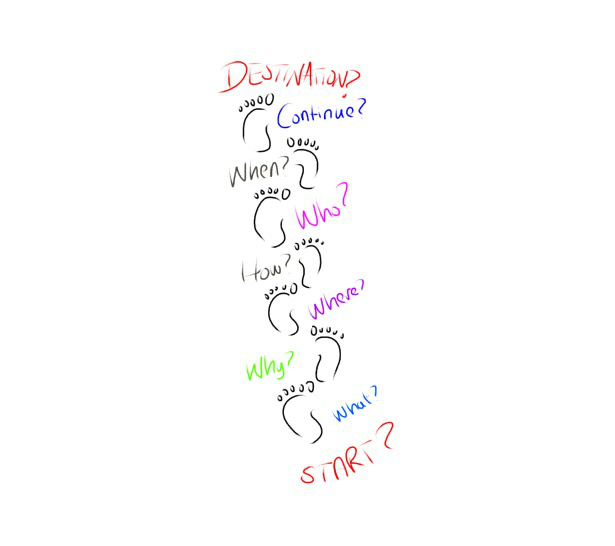 DESTINATION?
Continue?
When?
Who?
How?
Where?
Why?
What?
START?